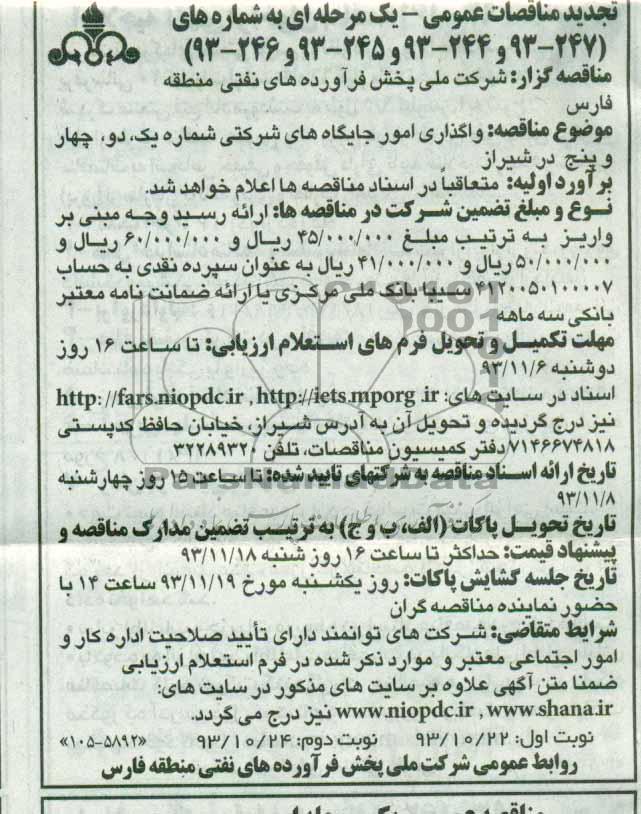 تجدید مناقصات عمومی - یک مرحله ای به شماره های
(۹۳-۲۴۷ و ۹۳-۲۴۴ و ۹۳-۲۴۵ و ۹۳-۲۴۶)
مناقصه گزار: شرکت ملی پخش فرآورده های نفتی منطقه
فارس
موضوع مناقصه: واگذاری امور جایگاه های شرکتی شماره یک، دو، چهار
و پنج در شیراز
برآورد اولیه: متعاقباً در اسناد مناقصه ها اعلام خواهد شد.
نوع و مبلغ تضمین شرکت در مناقصه ها: ارائه رسید وجه مبنی بر
واریز به ترتیب مبلغ ۴۵/۰۰۰/۰۰۰ ریال و ۶۰/۰۰۰/۰۰۰ ریال و
۵۰/۰۰۰/۰۰۰ ریال و ۴۱/۰۰۰/۰۰۰ ریال به عنوان سپرده نقدی به حساب
۴۱۲۰۰۵۰۱۰۰۰۰۷ سیبا بانک ملی مرکزی یا ارائه ضمانت نامه معتبر
بانکی سه ماهه
مهلت تکمیل و تحویل فرم های استعلام ارزیابی: تا ساعت ۱۶ روز
دوشنبه ۹۳/۱۱/۶
اسناد در سایت های: http://fars.niopdc.ir , http://iets.mporg.ir
نیز درج گردیده و تحویل آن به آدرس شیراز، خیابان حافظ کدپستی
۷۱۴۶۶۷۴۸۱۸/دفتر کمیسیون مناقصات، تلفن ۳۲۲۸۹۳۲۰
تاریخ ارائه اسناد مناقصه به شرکتهای تایید شده: تا ساعت ۱۵ روز چهارشنبه
۹۳/۱۱/۸
تاریخ تحویل پاکات (الف، ب و ج) به ترتیب تضمین مدارک مناقصه و
پیشنهاد قیمت: حداکثر تا ساعت ۱۶ روز شنبه ۹۳/۱۱/۱۸
تاریخ جلسه گشایش پاکات: روز یکشنبه مورخ ۹۳/۱۱/۱۹ ساعت ۱۴ با
حضور نماینده مناقصه گران
شرایط متقاضی: شرکت های توانمند دارای تأیید صلاحیت اداره کار و
امور اجتماعی معتبر و موارد ذکر شده در فرم استعلام ارزیابی
ضمنا متن آگهی علاوه بر سایت های مذکور در سایت های:
www.niopdc.ir , www.shana.ir نیز درج می گردد.
نوبت اول: ۹۳/۱۰/۲۲ نوبت دوم: ۹۳/۱۰/۲۴ «۱۰۵-۵۸۹۲»
روابط عمومی شرکت ملی پخش فرآورده های نفتی منطقه فارس